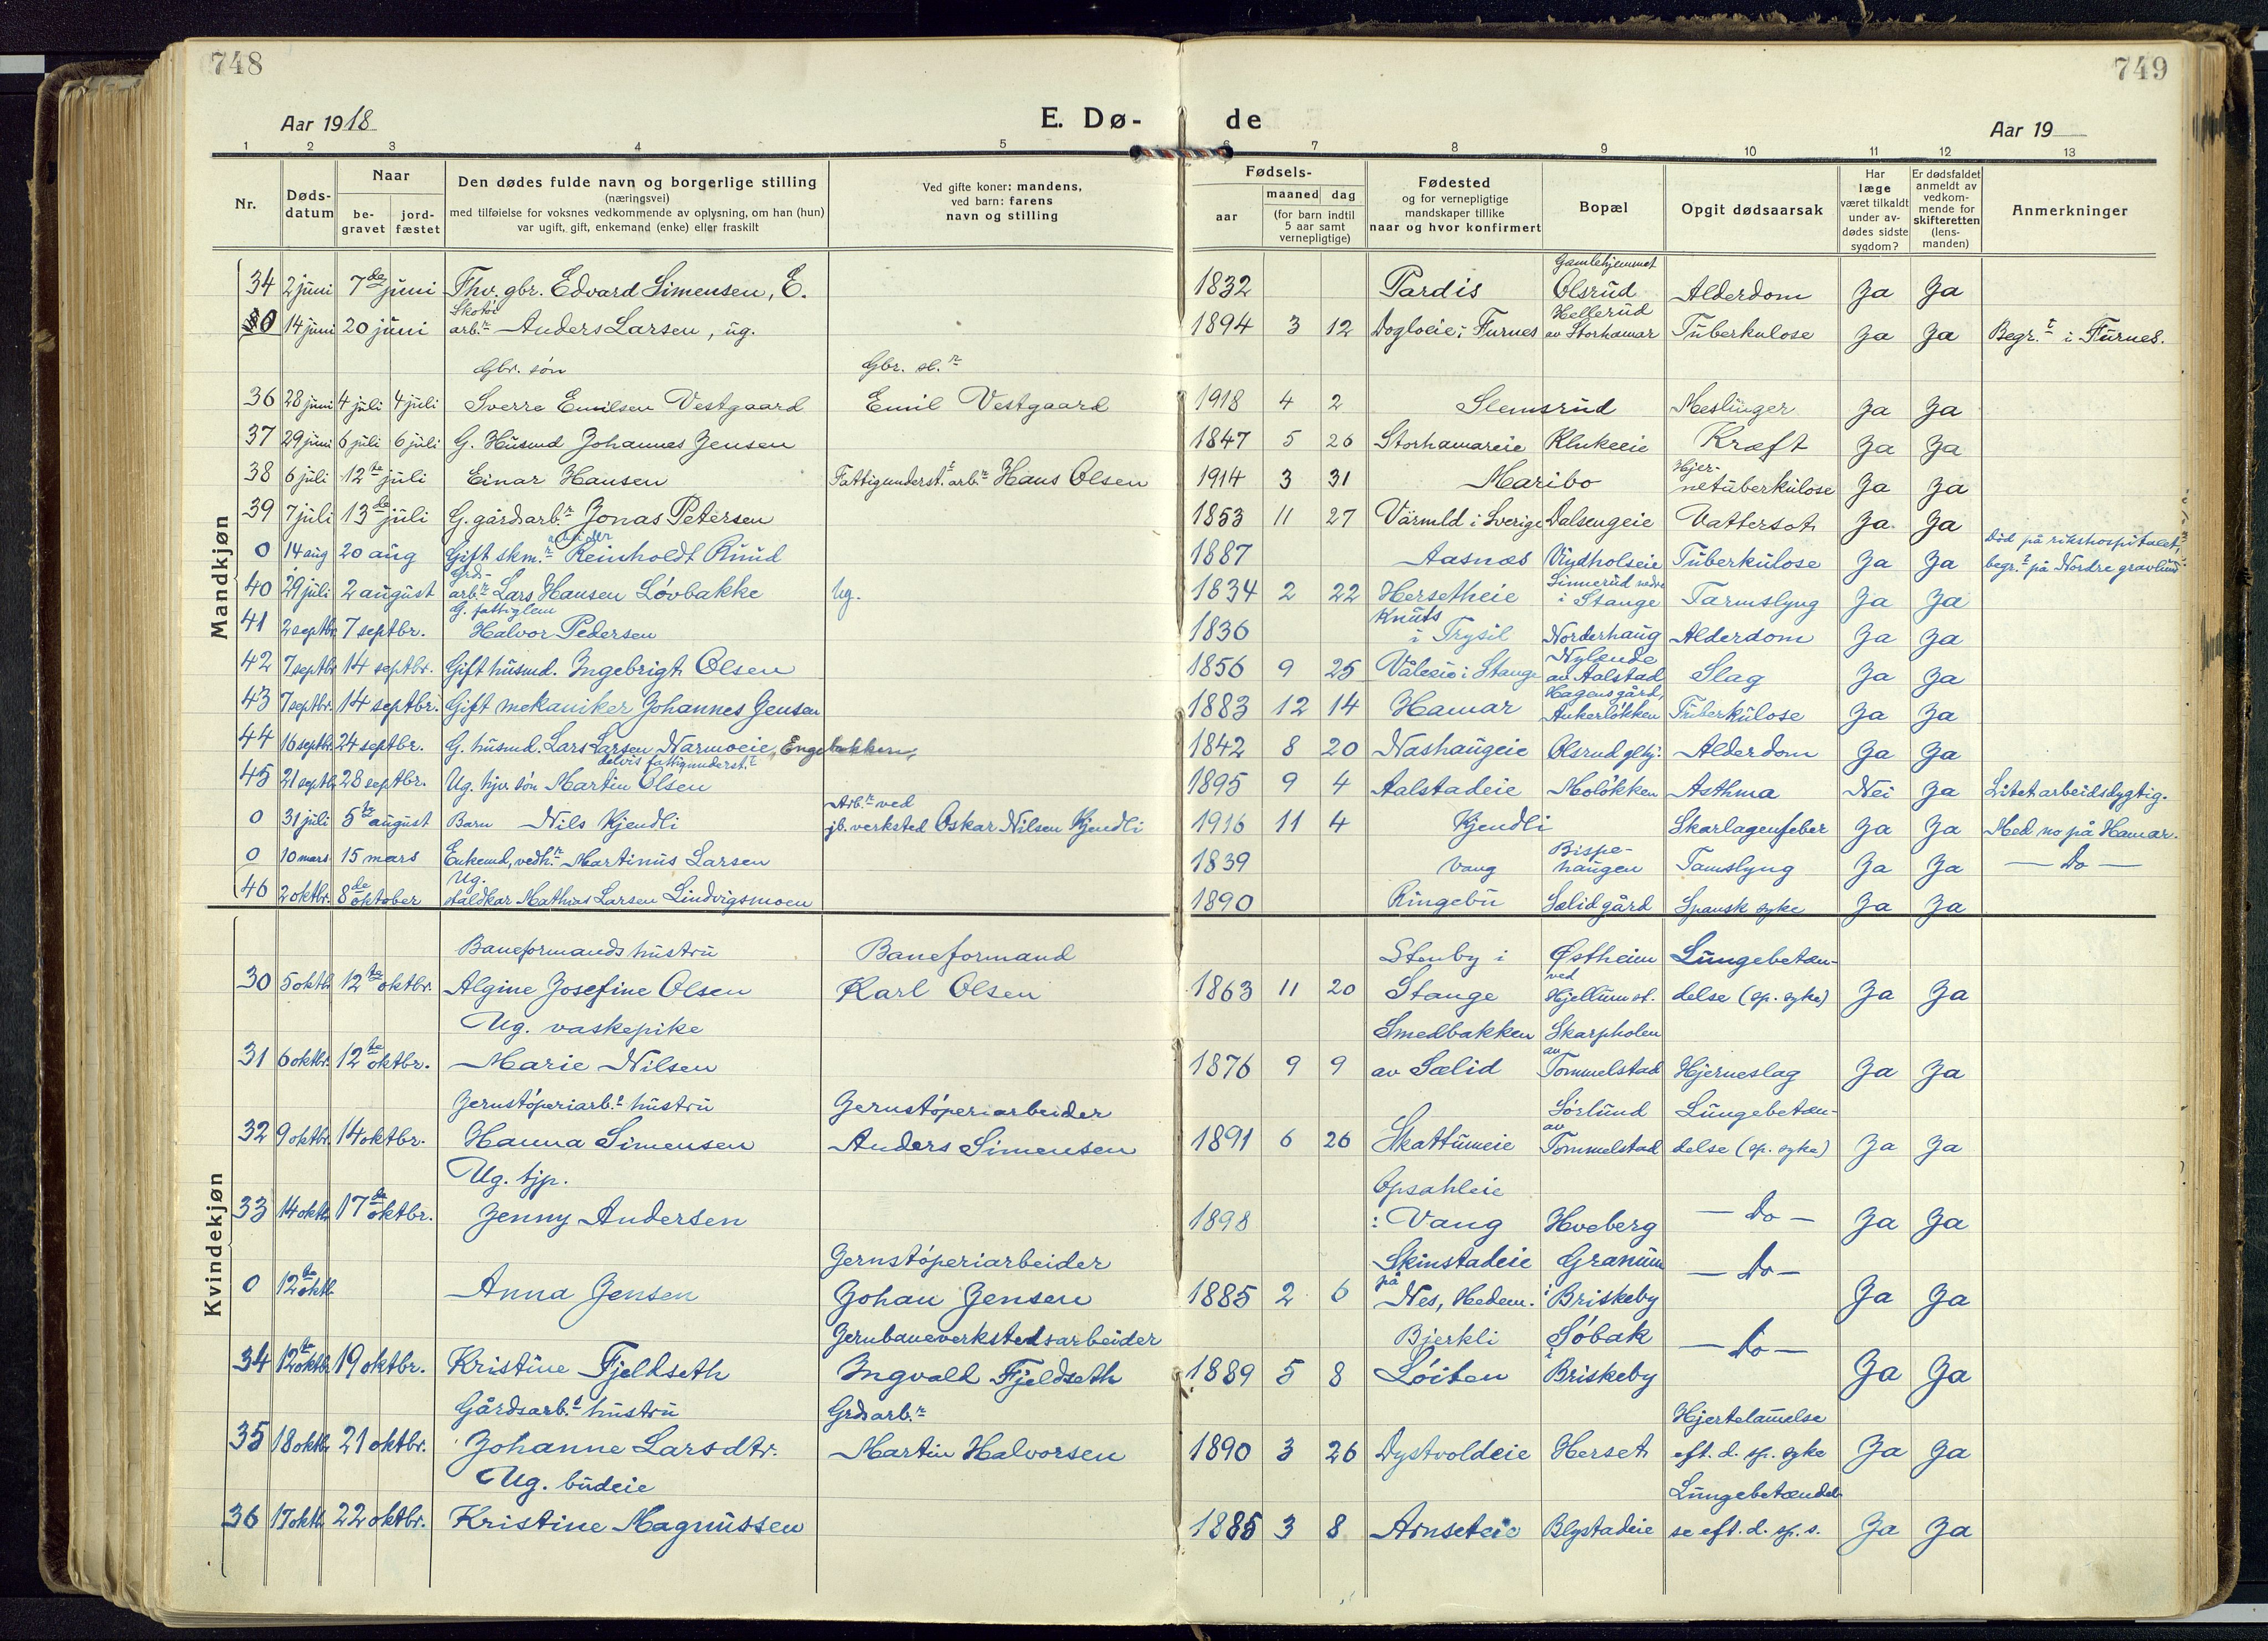 748
749
Aar 1918
E. Dø-
de
Aar 19
1 2 3 4 5 6 7 8 9 10 11 12 13
Nr.
Døds-
datum
Naar
be-
gravet
jord-
fæstet
Den dødes fulde navn og borgerlige stilling
(næringsvei)
med tilføielse for voksnes vedkommende av oplysning, om han (hun)
var ugift, gift, enkemand (enke) eller fraskilt
Ved gifte koner: mandens,
ved barn: farens
navn og stilling
Fødsels-
aar
maaned dag
(for barn indtil
5 aar samt
vernepligtige)
Fødested
og for vernepligtige
mandskaper tillike
naar og hvor konfirmert
Bopæl
Opgit dødsaarsak
Har
læge
været tilkaldt
under av-
dødes sidste
sygdom?
Er dødsfaldet
anmeldt av
vedkom-
mende for
skifteretten
(lens-
manden)
Anmerkninger
Mandkjøn
Gamlehjemmet
34 2 juni 7de juni Fhv. gbr. Edvard Simensen, E. 1832 Pardis Olsrud Alderdom Ja Ja
Skotøi Hellerud
0 14 juni 20 juni arb.r Anders Larsen, ug. 1894 3 12 Dogloeie i Furnes av Storhamar Tuberkulose Ja Ja Begr.t i Furnes.
Gbr. søn Gbr. sl.r
36 28 juni 4 juli 4 juli Sverre Emilsen Vestgaard Emil Vestgaard 1918 4 2 Slemsrud Meslinger Ja Ja
37 29 juni 6 juli 6 juli G. Husmd Johannes Jensen 1847 5 26 Storhamareie Klukeeie Kræft Ja Ja
Hjer-
38 6 juli 12te juli Einar Hansen Fattigunderst.t arb.r Hans Olsen 1914 3 31 Maribo netuberkulose Ja Ja
39 7 juli 13de juli G. gårdsarb.r Jonas Petersen 1853 11 27 Värmld i Sverige Dalsengeie Vattersot Ja Ja
arbeider Død på rikshospitalet,
0 14 aug 20 aug Gift skm.r Reinholdt Ruud 1887 Aasnæs Vidholseie Tuberkulose Ja Ja begr.t på Nordre gravlund
Grds- Sinnerud nedre
40 29 juli 2 august arb.r Lars Hansen Løvbakke ug. 1834 2 22 Hersetheie i Stange Tarmslyng Ja Ja
G. fattiglem Knuts
41 2 septbr. 7 septbr. Halvor Pedersen 1836 i Trysil Norderhaug Alderdom Ja Ja
Nylende
42 7 septbr 14 septbr. Gift husmd. Ingebrigt Olsen 1856 9 25 Våleeie i Stange av Aalstad Slag Ja Ja
Hagensgård,
43 7 septbr. 14 septbr. Gift mekaniker Johannes Jensen 1883 12 14 Hamar Ankerløkken Tuberkulose Ja Ja
44 16 septbr. 24 septbr. G. husmd. Lars Larsen Narmoeie, Engebakken, 1842 8 20 Nashaugeie Olsrud glhj. Alderdom Ja Ja
delvis fattigunderst.t
45 21 septb. 28 septbr. Ug. hjv. søn Martin Olsen 1895 9 4 Aalstadeie Moløkken Asthma Nei Ja Litet arbeidsdygtig.
Arb.r ved
0 31 juli 5te august Barn Nils Kjendli jb. verksted Oskar Nilsen Kjendli 1916 11 4 Kjendli Skarlagenfeber Ja Ja Med no på Hamar.
Bispe-
0 10 mars 15 mars Enkemd, vedh.r Martinus Larsen 1839 Vang haugen Tamslyng Ja Ja — Do —
Ug.
46 2 oktbr. 8de oktober staldkar Mathias Larsen Lindvigsmoen 1890 Ringebu Sælidgård Spansk syke Ja Ja
Kvindekjøn
Baneformands hustru Baneformand Stenby i Østheim Lungebetæn-
ved
30 5 oktb. 12te oktbr. Algine Josefine Olsen Karl Olsen 1863 11 20 Stange Hjellum st. delse (sp. syke) Ja Ja
Ug. vaskepike Smedbakken Skarpholen
av
31 6 oktbr. 12te oktbr. Marie Nilsen 1876 9 9 av Sælid Tommelstad Hjerneslag Ja Ja
Jernstøperiarb.s hustru Jernstøperiarbeider Sørlund Lungebetæn-
av
32 9 oktbr. 14 oktbr. Hanna Simensen Anders Simensen 1891 6 26 Skattumeie Tommelstad delse (sp. syke) Ja Ja
Ug. tjp. Opsahleie
33 14 oktb. 17de oktbr. Jenny Andersen 1898 i Vang Hveberg — Do — Ja Ja
Jernstøperiarbeider Skinstadeie Granum
på
0 12te oktb. Anna Jensen Johan Jensen 1885 2 6 Nes, Hedem. i Briskeby — Do — Ja Ja
Jernbaneverkstedsarbeider Bjerkli Søbak
i
34 12te oktb 19 oktbr. Kristine Fjeldseth Ingvald Fjeldseth 1889 5 8 Løiten Briskeby — Do — Ja Ja
Gårdsarb.s hustru Grdsarb.r Hjertelamelse
35 18 oktb. 21 oktbr. Johanne Larsdtr. Martin Halvorsen 1890 3 26 Dystvoldeie Herset eft. d. sp. syke Ja Ja
Ug. budeie Lungebetændel-
36 17 oktb. 22 oktbr. Kristine Magnussen 1885 3 8 Arnseteie Blystadeie se eft. d. sp. s. Ja Ja